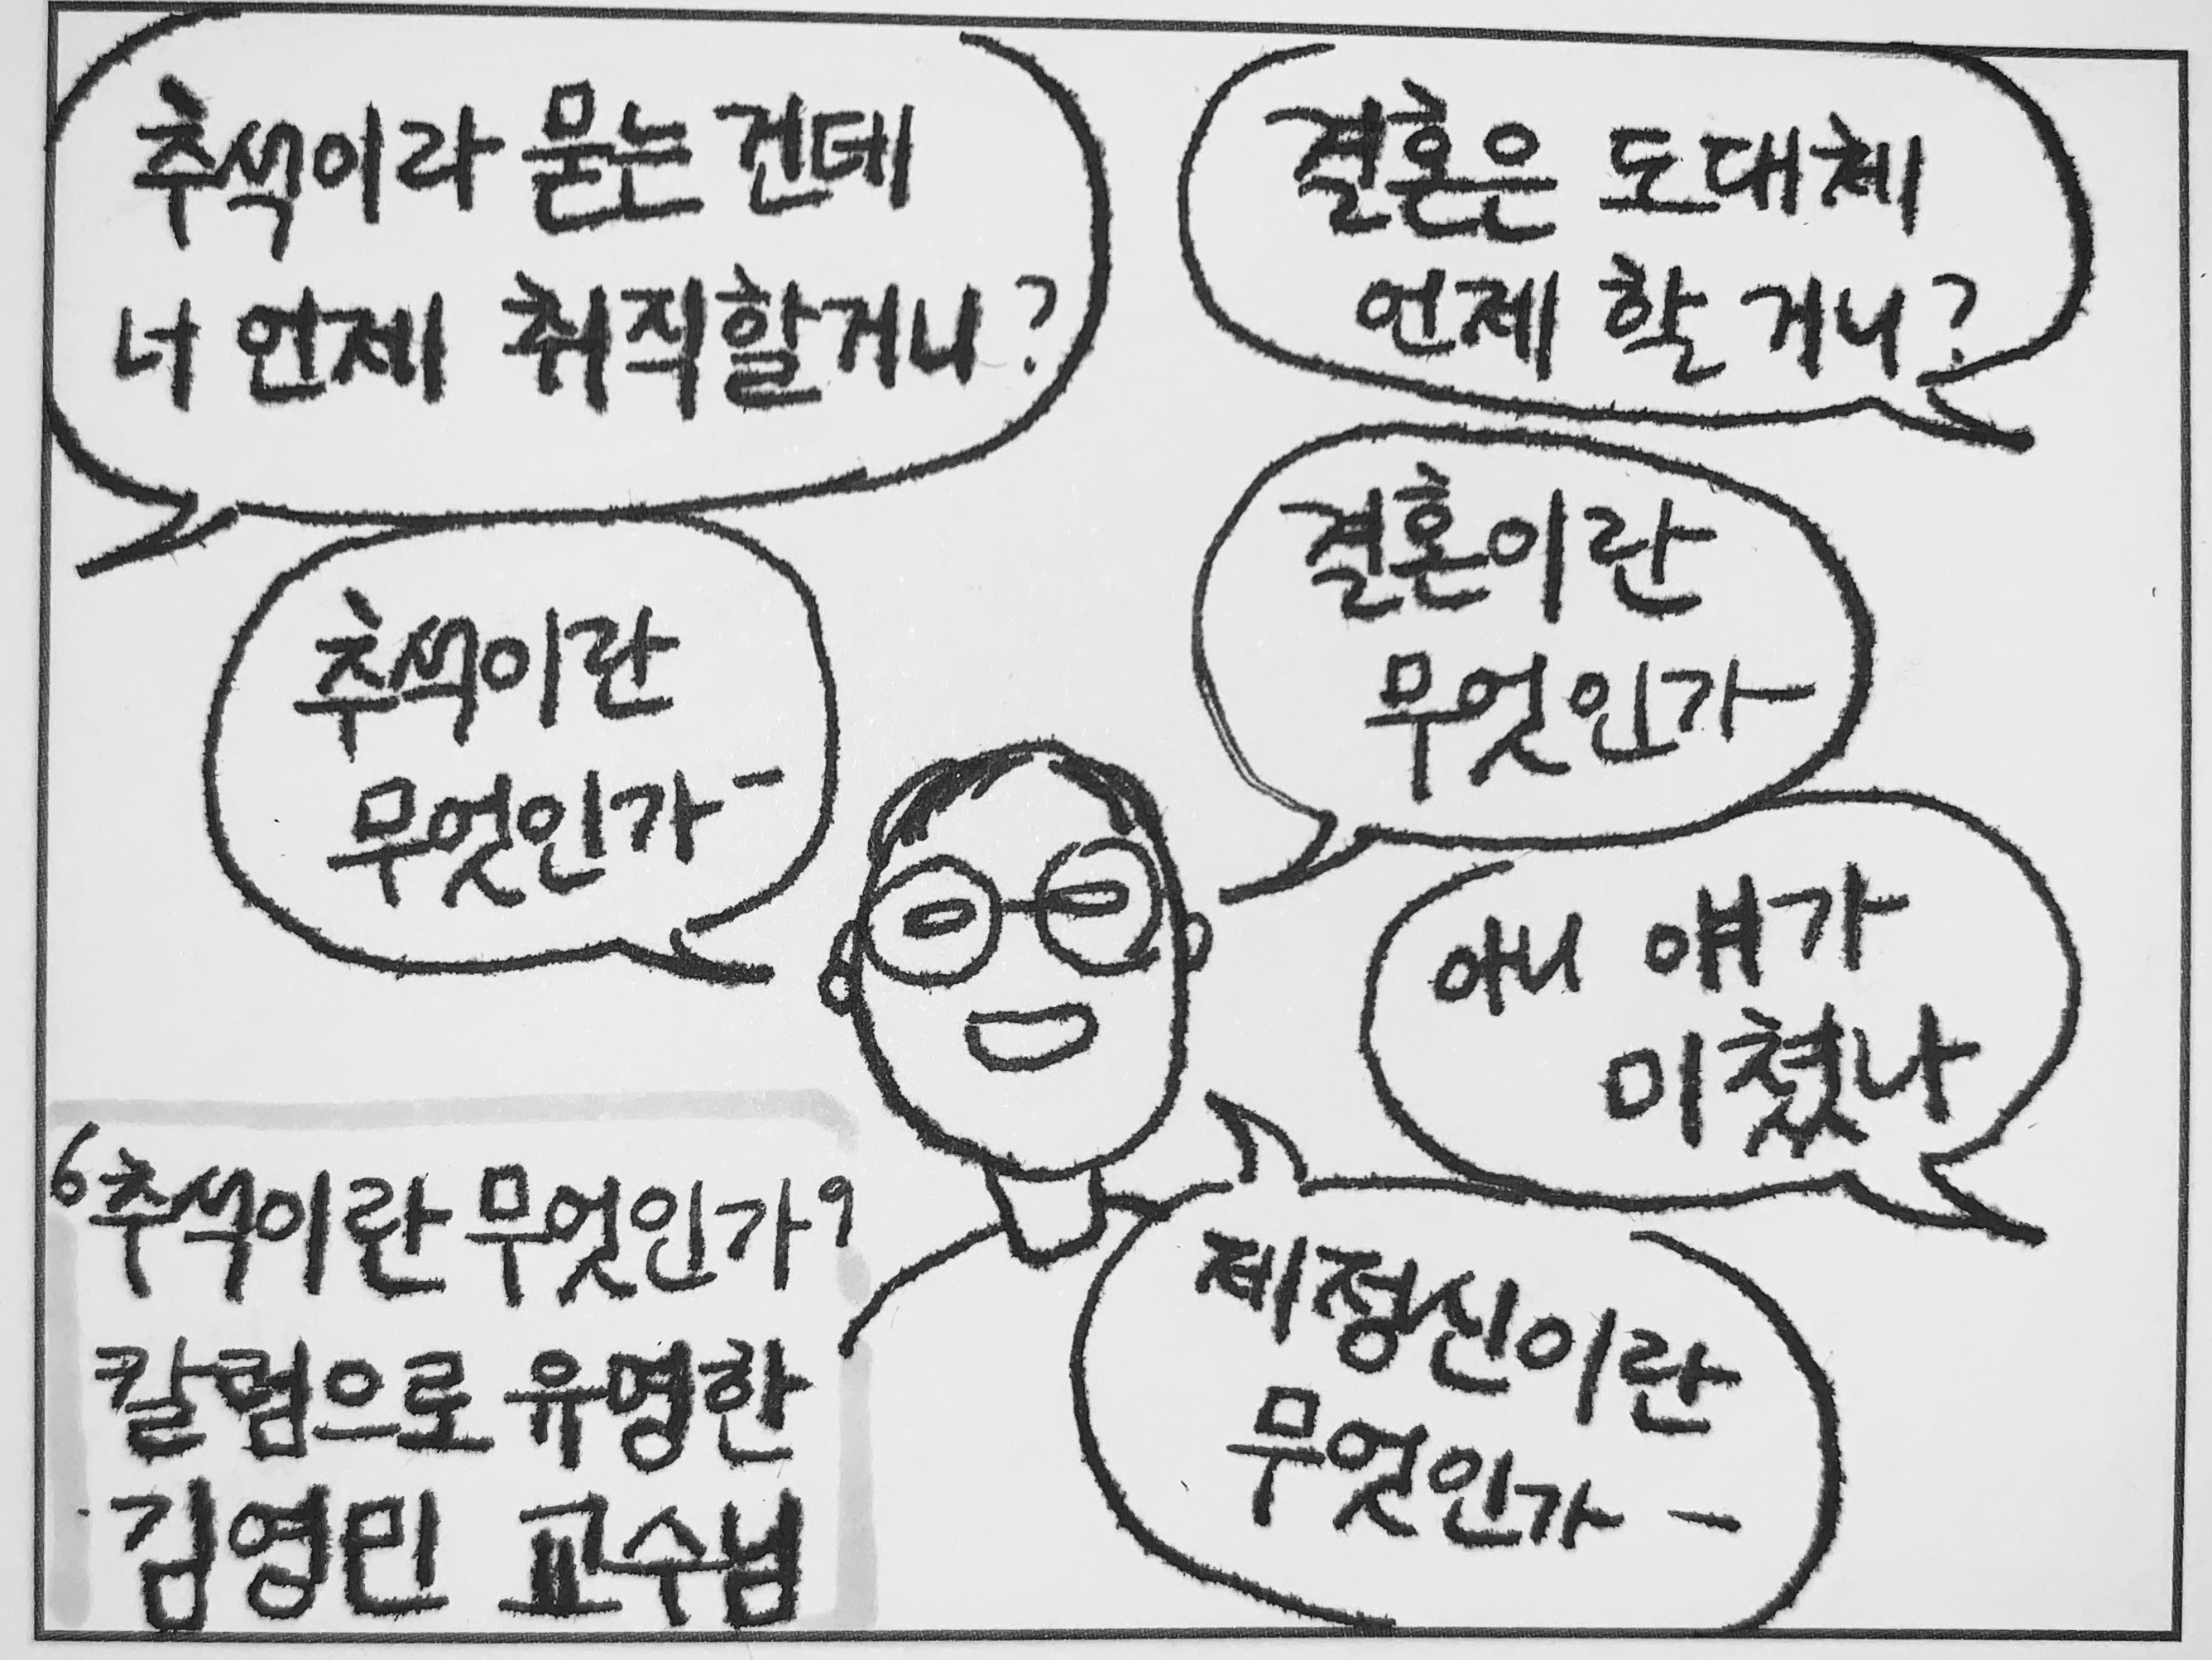 추석이라 묻는건데
너 언제 취직할거니?
추석이란
무엇인가-
결혼은 도대체
언제 할 거니?
결혼이란
무엇인가-
아니 얘가
미쳤나
제정신이란
무엇인가-
'추석이란 무엇인가'
칼럼으로 유명한
김영민 교수님